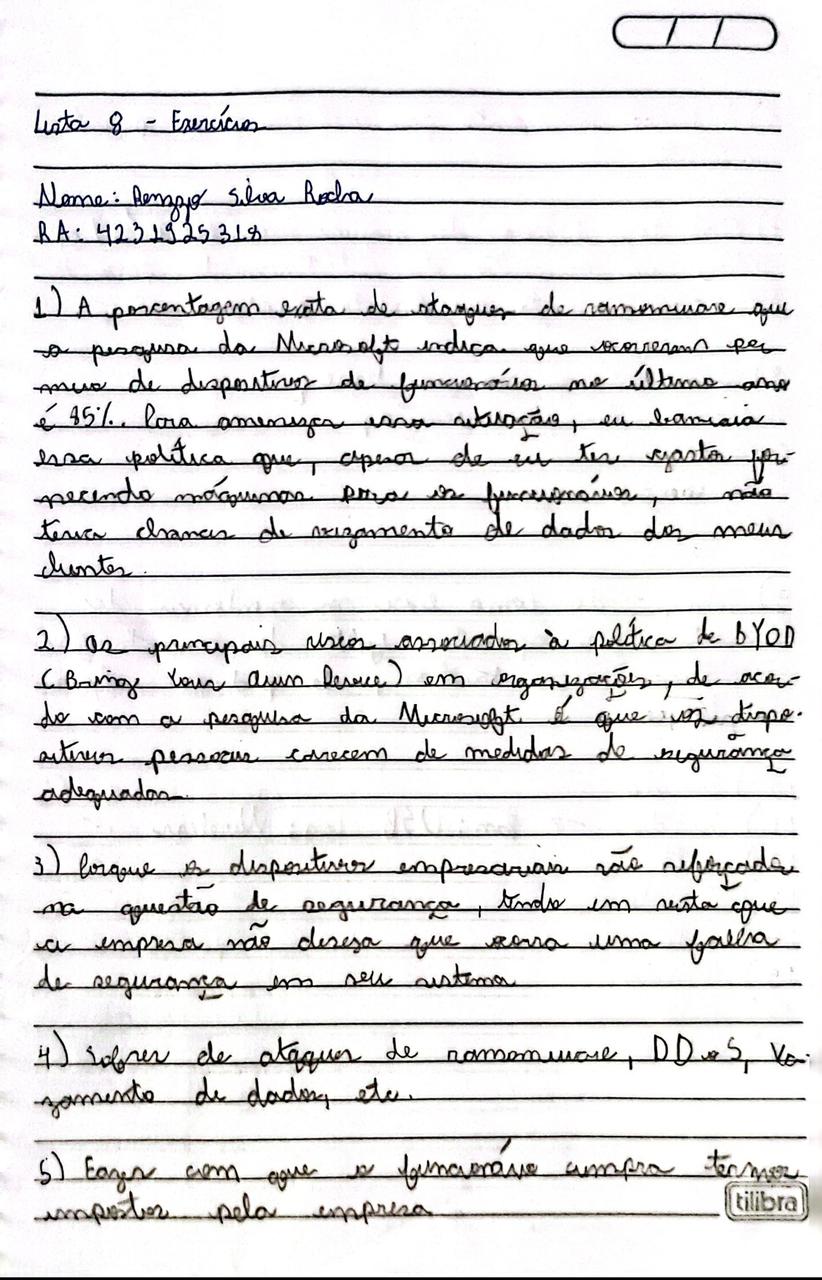 Lista 8 - Exercícios
Nome: Renzzo Silva Rocha
RA: 4231925318
1) A porcentagem exata de ataques de ramomware que
a pesquisa da Microsoft indica que ocorreram por
meio de dispositivos de funcionários no último ano
é 85%. Para amenizar essa situação, eu baniria
essa política que, apesar de eu ter gastos for-
necendo máquinas para os funcionários, não
teria chances de vazamento de dados dos meus
clientes.
2) Os principais riscos associados à política de BYOD
(Bring Your Own Device) em organizações, de acor-
do com a pesquisa da Microsoft é que os dispo-
sitivos pessoais carecem de medidas de segurança
adequadas.
3) Porque os dispositivos empresariais são reforçados
na questão de segurança, tendo em vista que
a empresa não deseja que ocorra uma falha
de segurança em seu sistema
4) Sofrer de ataques de ramomware, DDoS, Va-
zamento de dados, etc.
5) Fazer com que o funcionário cumpra termos
impostos pela empresa
tilibra